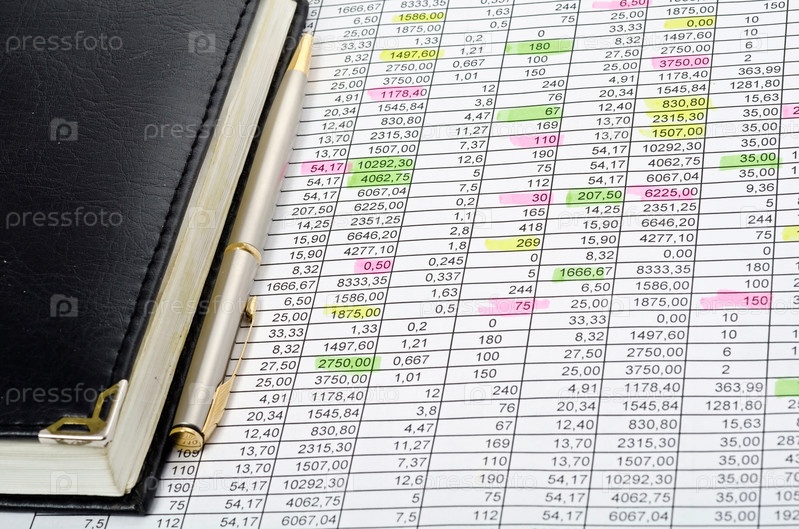 pressfoto pressfoto pressfoto
1666,67 8333,35 0,337 5 25,00 6,50
6,50 1586,00 0,63 244 25,00 1875,00 10
25,00 1875,00 0,5 75 33,33 0,00 10
33,33 1,33 0,2 180 8,32 1497,60 6
8,32 1497,60 1,21 100 27,50 2750,00 2
27,50 2750,00 0,667 150 25,00 3750,00 363,99
25,00 3750,00 1,01 240 4,91 1178,40 1281,80
4,91 1178,40 12 76 20,34 1545,84 15,63
20,34 1545,84 3,8 67 12,40 830,80 35,00
12,40 830,80 4,47 169 13,70 2315,30 35,00
13,70 2315,30 11,27 110 13,70 1507,00 35,00
13,70 1507,00 7,37 190 54,17 10292,30 35,00
54,17 10292,30 12,6 75 54,17 4062,75 35,00
54,17 4062,75 5 112 54,17 6067,04 9,36
54,17 6067,04 7,5 30 207,50 6225,00 5
207,50 6225,00 0,2 165 14,25 2351,25 244
14,25 2351,25 1,1 418 15,90 6646,20 75
15,90 6646,20 2,8 269 15,90 4277,10 0
15,90 4277,10 1,8 0 8,32 0,00 180
8,32 0,50 0,245 5 1666,67 8333,35 100
1666,67 8333,35 0,337 244 6,50 1586,00 150
6,50 1586,00 1,63 75 25,00 1875,00 10
25,00 1875,00 0,5 0 33,33 0,00 10
33,33 1,33 0,2 180 8,32 1497,60 6
8,32 1497,60 1,21 100 27,50 2750,00 2
27,50 2750,00 0,667 150 25,00 3750,00 363,99
25,00 3750,00 1,01 240 4,91 1178,40 1281,80
4,91 1178,40 12 76 20,34 1545,84 15,63
20,34 1545,84 3,8 67 12,40 830,80 35,00
12,40 830,80 4,47 169 13,70 2315,30 35,00
169 13,70 2315,30 11,27 110 13,70 1507,00 35,00
110 13,70 1507,00 7,37 190 54,17 10292,30 35,00
190 54,17 10292,30 12,6 75 54,17 4062,75
75 54,17 4062,75 5 112 54,17 6067,04
7,5 112 54,17 6067,04 7,5